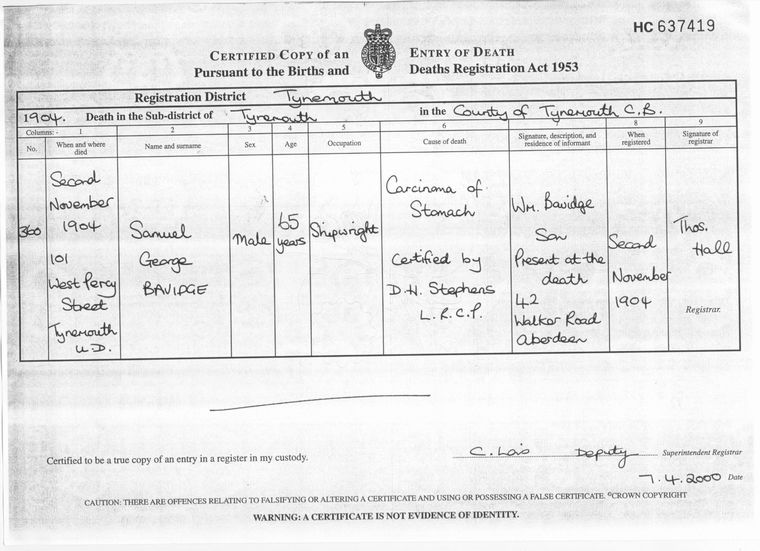 HC 637419
CERTIFIED COPY OF AN ENTRY OF DEATH
Pursuant to the Births and Deaths Registration Act 1953
Registration District Tynemouth
1904. Death in the Sub-district of Tynemouth in the County of Tynemouth C.B.
Columns:- 1 2 3 4 5 6 7 8 9
No. When and where died Name and surname Sex Age Occupation Cause of death Signature, description, and residence of informant When registered Signature of registrar
360
Second
November
1904
101
West Percy
Street
Tynemouth
U.D.
Samuel
George
BAVIDGE
Male
65
years
Shipwright
Carcinoma of
Stomach
Certified by
D.H. Stephens
L.R.C.P.
Wm. Bavidge
Son
Present at the
death
42
Walker Road
Aberdeen
Second
November
1904
Thos.
Hall
Registrar.
Certified to be a true copy of an entry in a register in my custody.
C. Deputy Superintendent Registrar
7.4.2000 Date
CAUTION: THERE ARE OFFENCES RELATING TO FALSIFYING OR ALTERING A CERTIFICATE AND USING OR POSSESSING A FALSE CERTIFICATE. ©CROWN COPYRIGHT
WARNING: A CERTIFICATE IS NOT EVIDENCE OF IDENTITY.